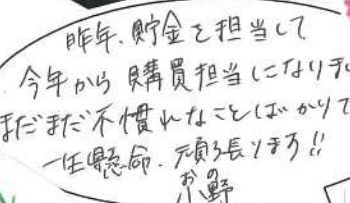 昨年、貯金を担当して
今年から購買担当になりま
まだまだ不慣れなことばかりで
一生懸命、頑張ります!!
おの
小野